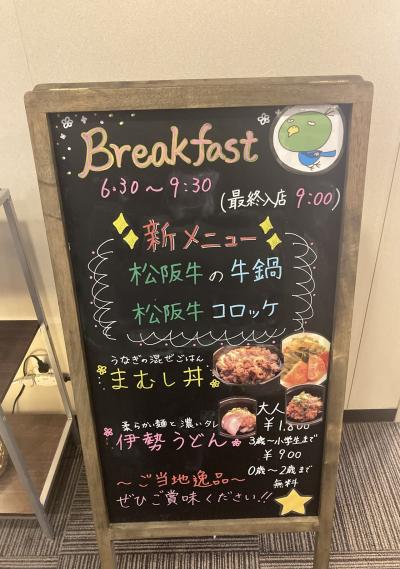 Breakfast
6:30～9:30
(最終入店 9:00)
新メニュー
松阪牛の牛鍋
松阪牛コロッケ
うなぎの混ぜごはん
まむし丼
柔らかい麺と濃いタレ
伊勢うどん
大人
￥1,800
3歳～小学生まで
￥900
0歳～2歳まで
無料
～ご当地逸品～
ぜひご賞味ください!!